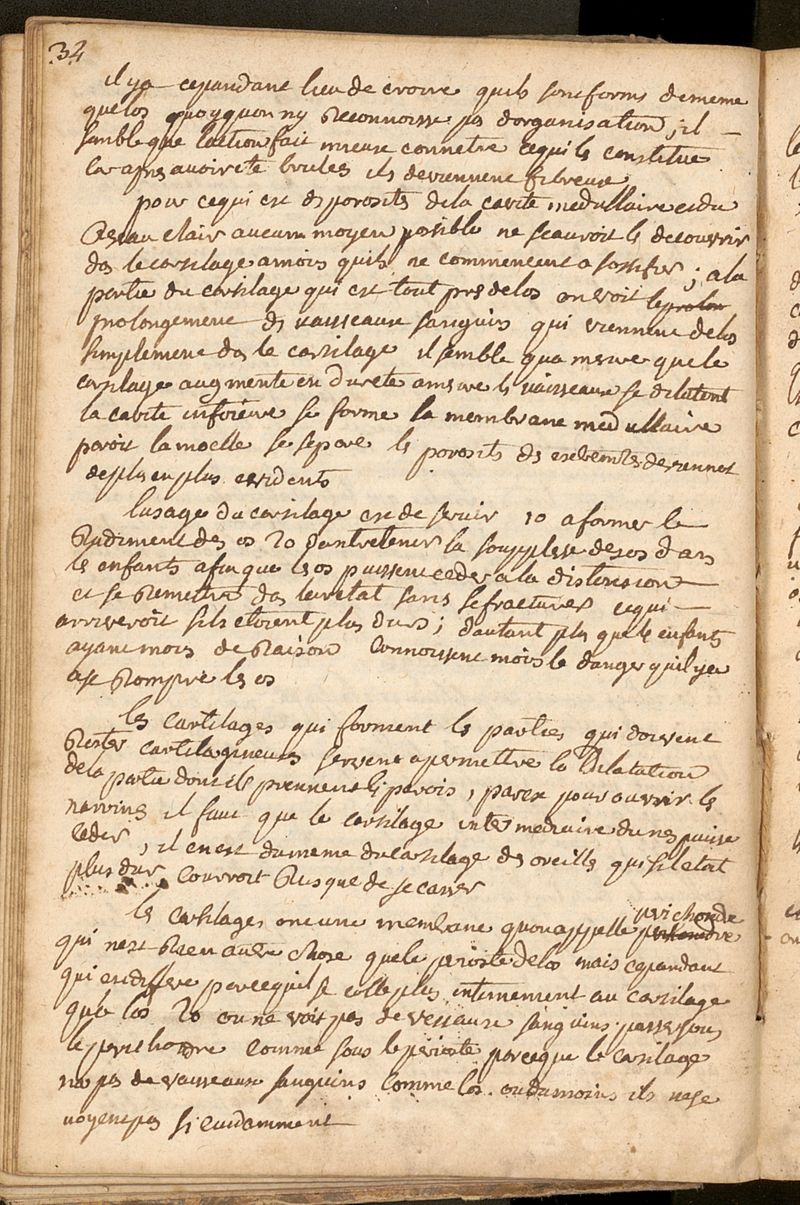 34
il y a cependant lieu de croire quils sont formés de meme
que los quoyquon ny Reconnoisse pas dorganisation ; il
semble que laction fait mieux connetre ce qui les constitue
car apres avoir eté brules ils deviennent fibreux
pour ce qui est des porosités de la cavite medullaire et du
aucun moyen possible ne scauroit les decouvrir
ds le cartilage a moins quils ne commencent a sossifier ; a la
partie du cartilage qui est tout pres de los on voit le prolon
prolongement des vaisseaux sanguins qui viennent de los
simplement ds le cartilage il semble qua mesure que le
cartilage augmente en dureté a mesure les vaisseaux se dilatent
la cavite inferieure se forme la membrane medullaire
paroit la moelle se separe les porosités des extremités deviennent
de plus en plus evidents
lusage du cartilage est de servir 1o a former le
Rudiment des os 2o dentretenir la souplesse des os dans
les enfants afin que les os puissent ceder a la distension
et se Remettre ds leur etat sans se fracturer ce qui
arriveroit sils etoient plus durs ; dautant plus que les enfants
ayant moins de Raison connoissent moins le danger quil y a
a se Rompre les os
les cartilages qui forment les parties qui doivent
Rester cartilagineuses servent a permettre la Dilatation
de la partie dont ils prennent les parois, parex pour ouvrir les
narrines il faut que le cartilage intermediaire du nes puisse
ceder, il en est du meme du cartilage des oreilles qui sil etoit
plus dur courroit Risque de se casser
les cartilages ont une membrane quon appelle perichondre
qui nest Rien autre chose que le perioste de los mais cependant
qui en differe parcequil se colle plus intimement au cartilage
que los 2o on ne voit pas de vesseaux sanguins passer sous
le perichondre comme sous le perioste parceque le cartilage
na pas de vaisseaux sanguins comme los. ou du moins ils ne se
voyent pas si evidamment